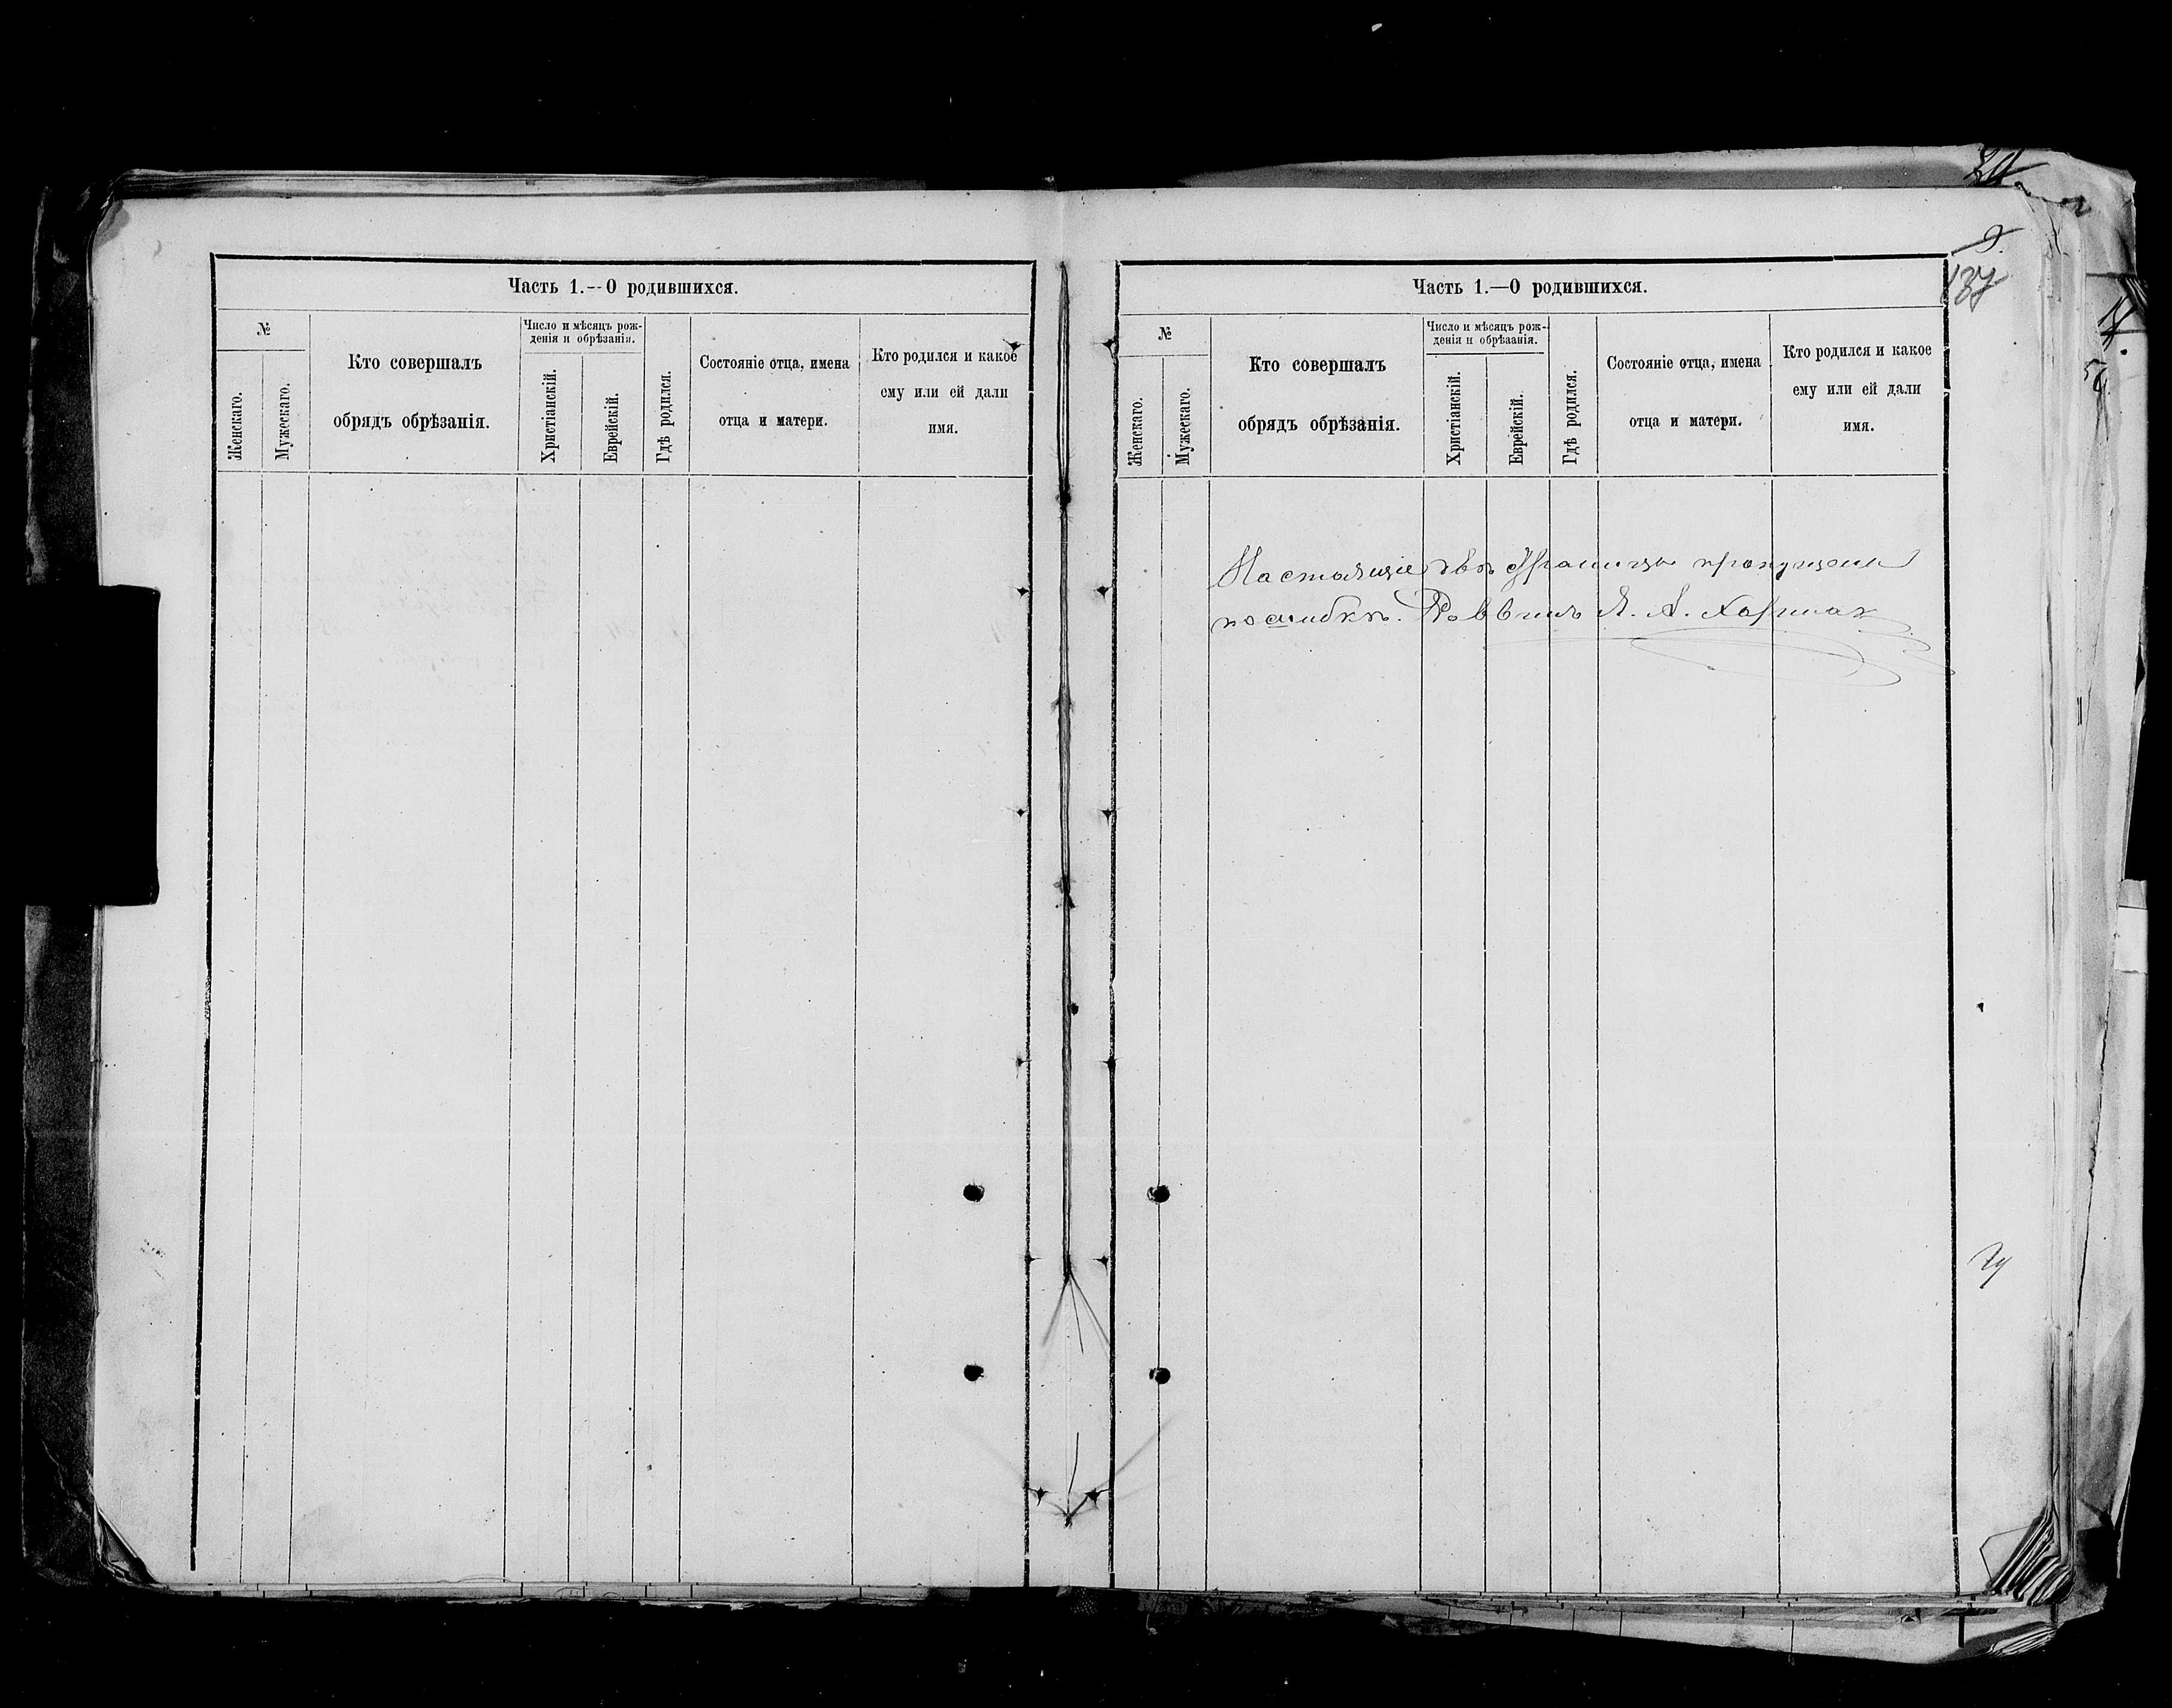 Часть 1.--О родившихся.
№
Женскаго.
Мужескаго.
Кто совершалъ
обрядъ обрѣзанія.
Число и мѣсяцъ рож-
денія и обрѣзанія.
Христіанскій.
Еврейскій.
Гдѣ родился.
Состояніе отца, имена
отца и матери.
Кто родился и какое
ему или ей дали
имя.
Часть 1.—О родившихся.
№
Женскаго.
Мужескаго.
Кто совершалъ
обрядъ обрѣзанія.
Число и мѣсяцъ рож-
денія и обрѣзанія.
Христіанскій.
Еврейскій.
Гдѣ родился.
Состояніе отца, имена
отца и матери.
Кто родился и какое
ему или ей дали
имя.
9.
137
Настоящіе двѣ страницы пропущены
по ошибкѣ. Раввинъ Я. А.